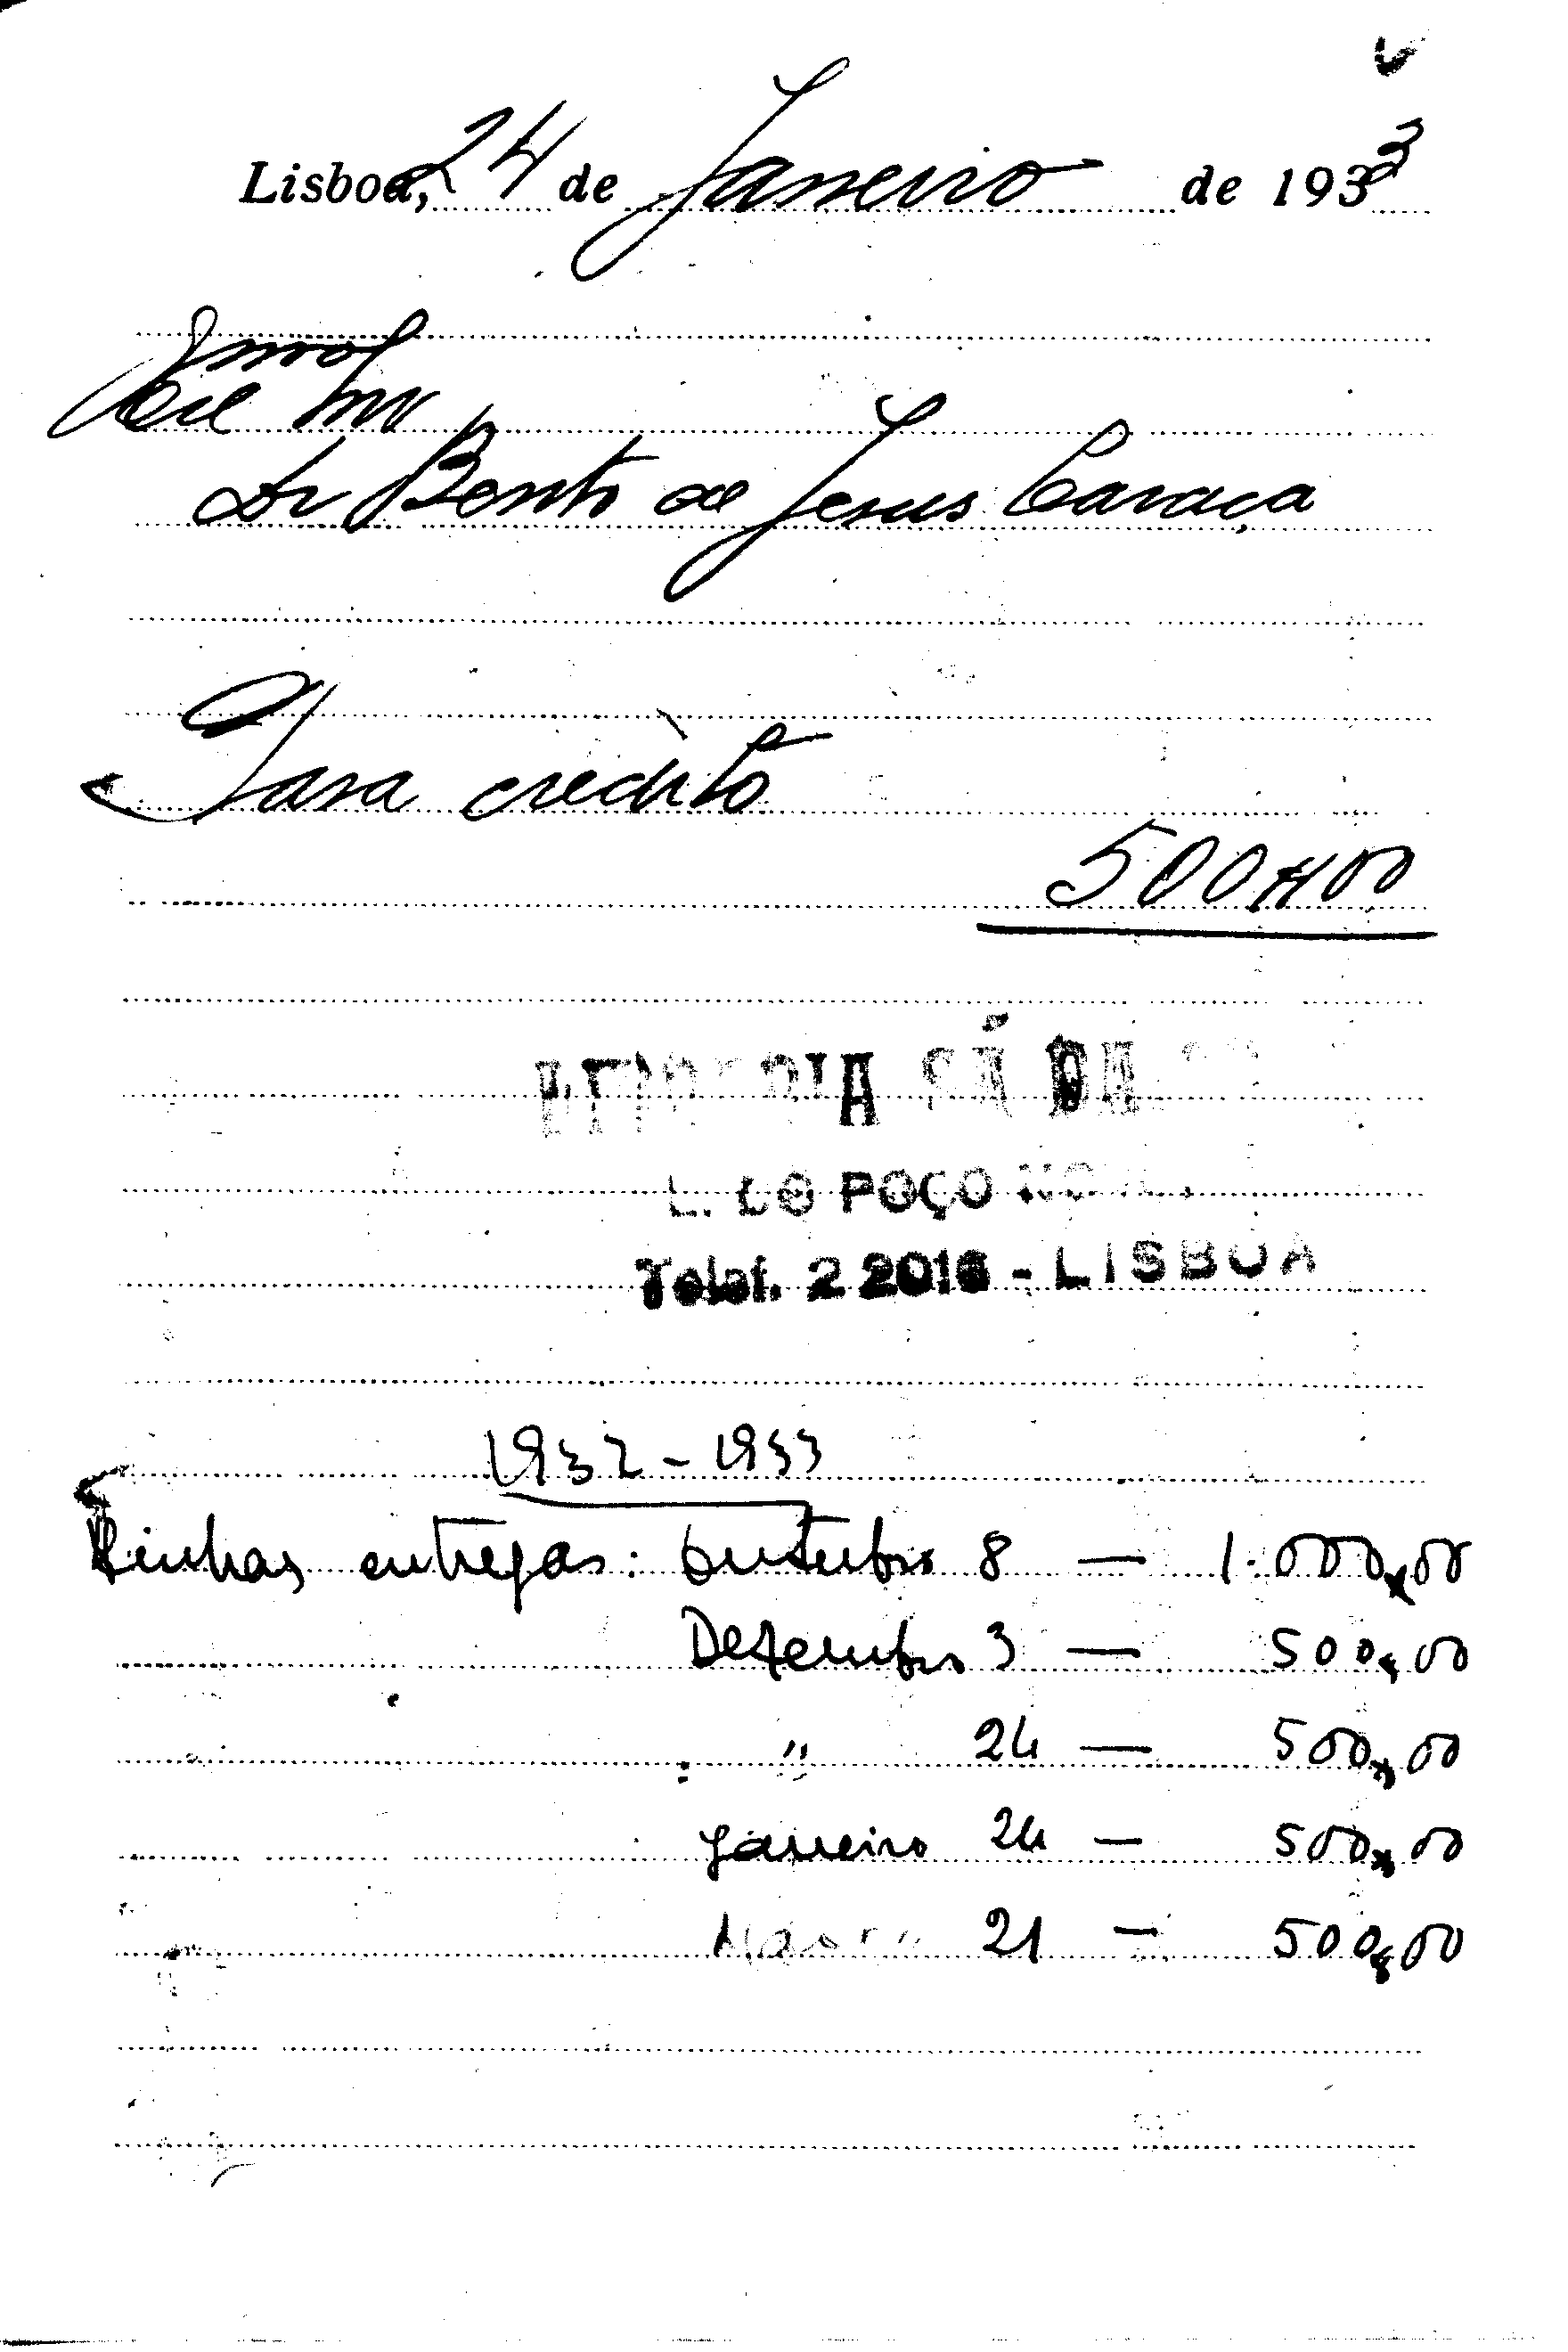 Lisboa, 24 de Janeiro de 1933
Exmo Snr
Dr Bento de Jesus Caraça
Para crédito
500$00
SÁ DA
L. DO POÇO NOVO
Telef. 2 2016 - LISBOA
1932 - 1933
Minhas entregas: Outubro 8 — 1.000,00
Dezembro 3 — 500,00
" 24 — 500,00
Janeiro 24 — 500,00
Março 21 — 500,00